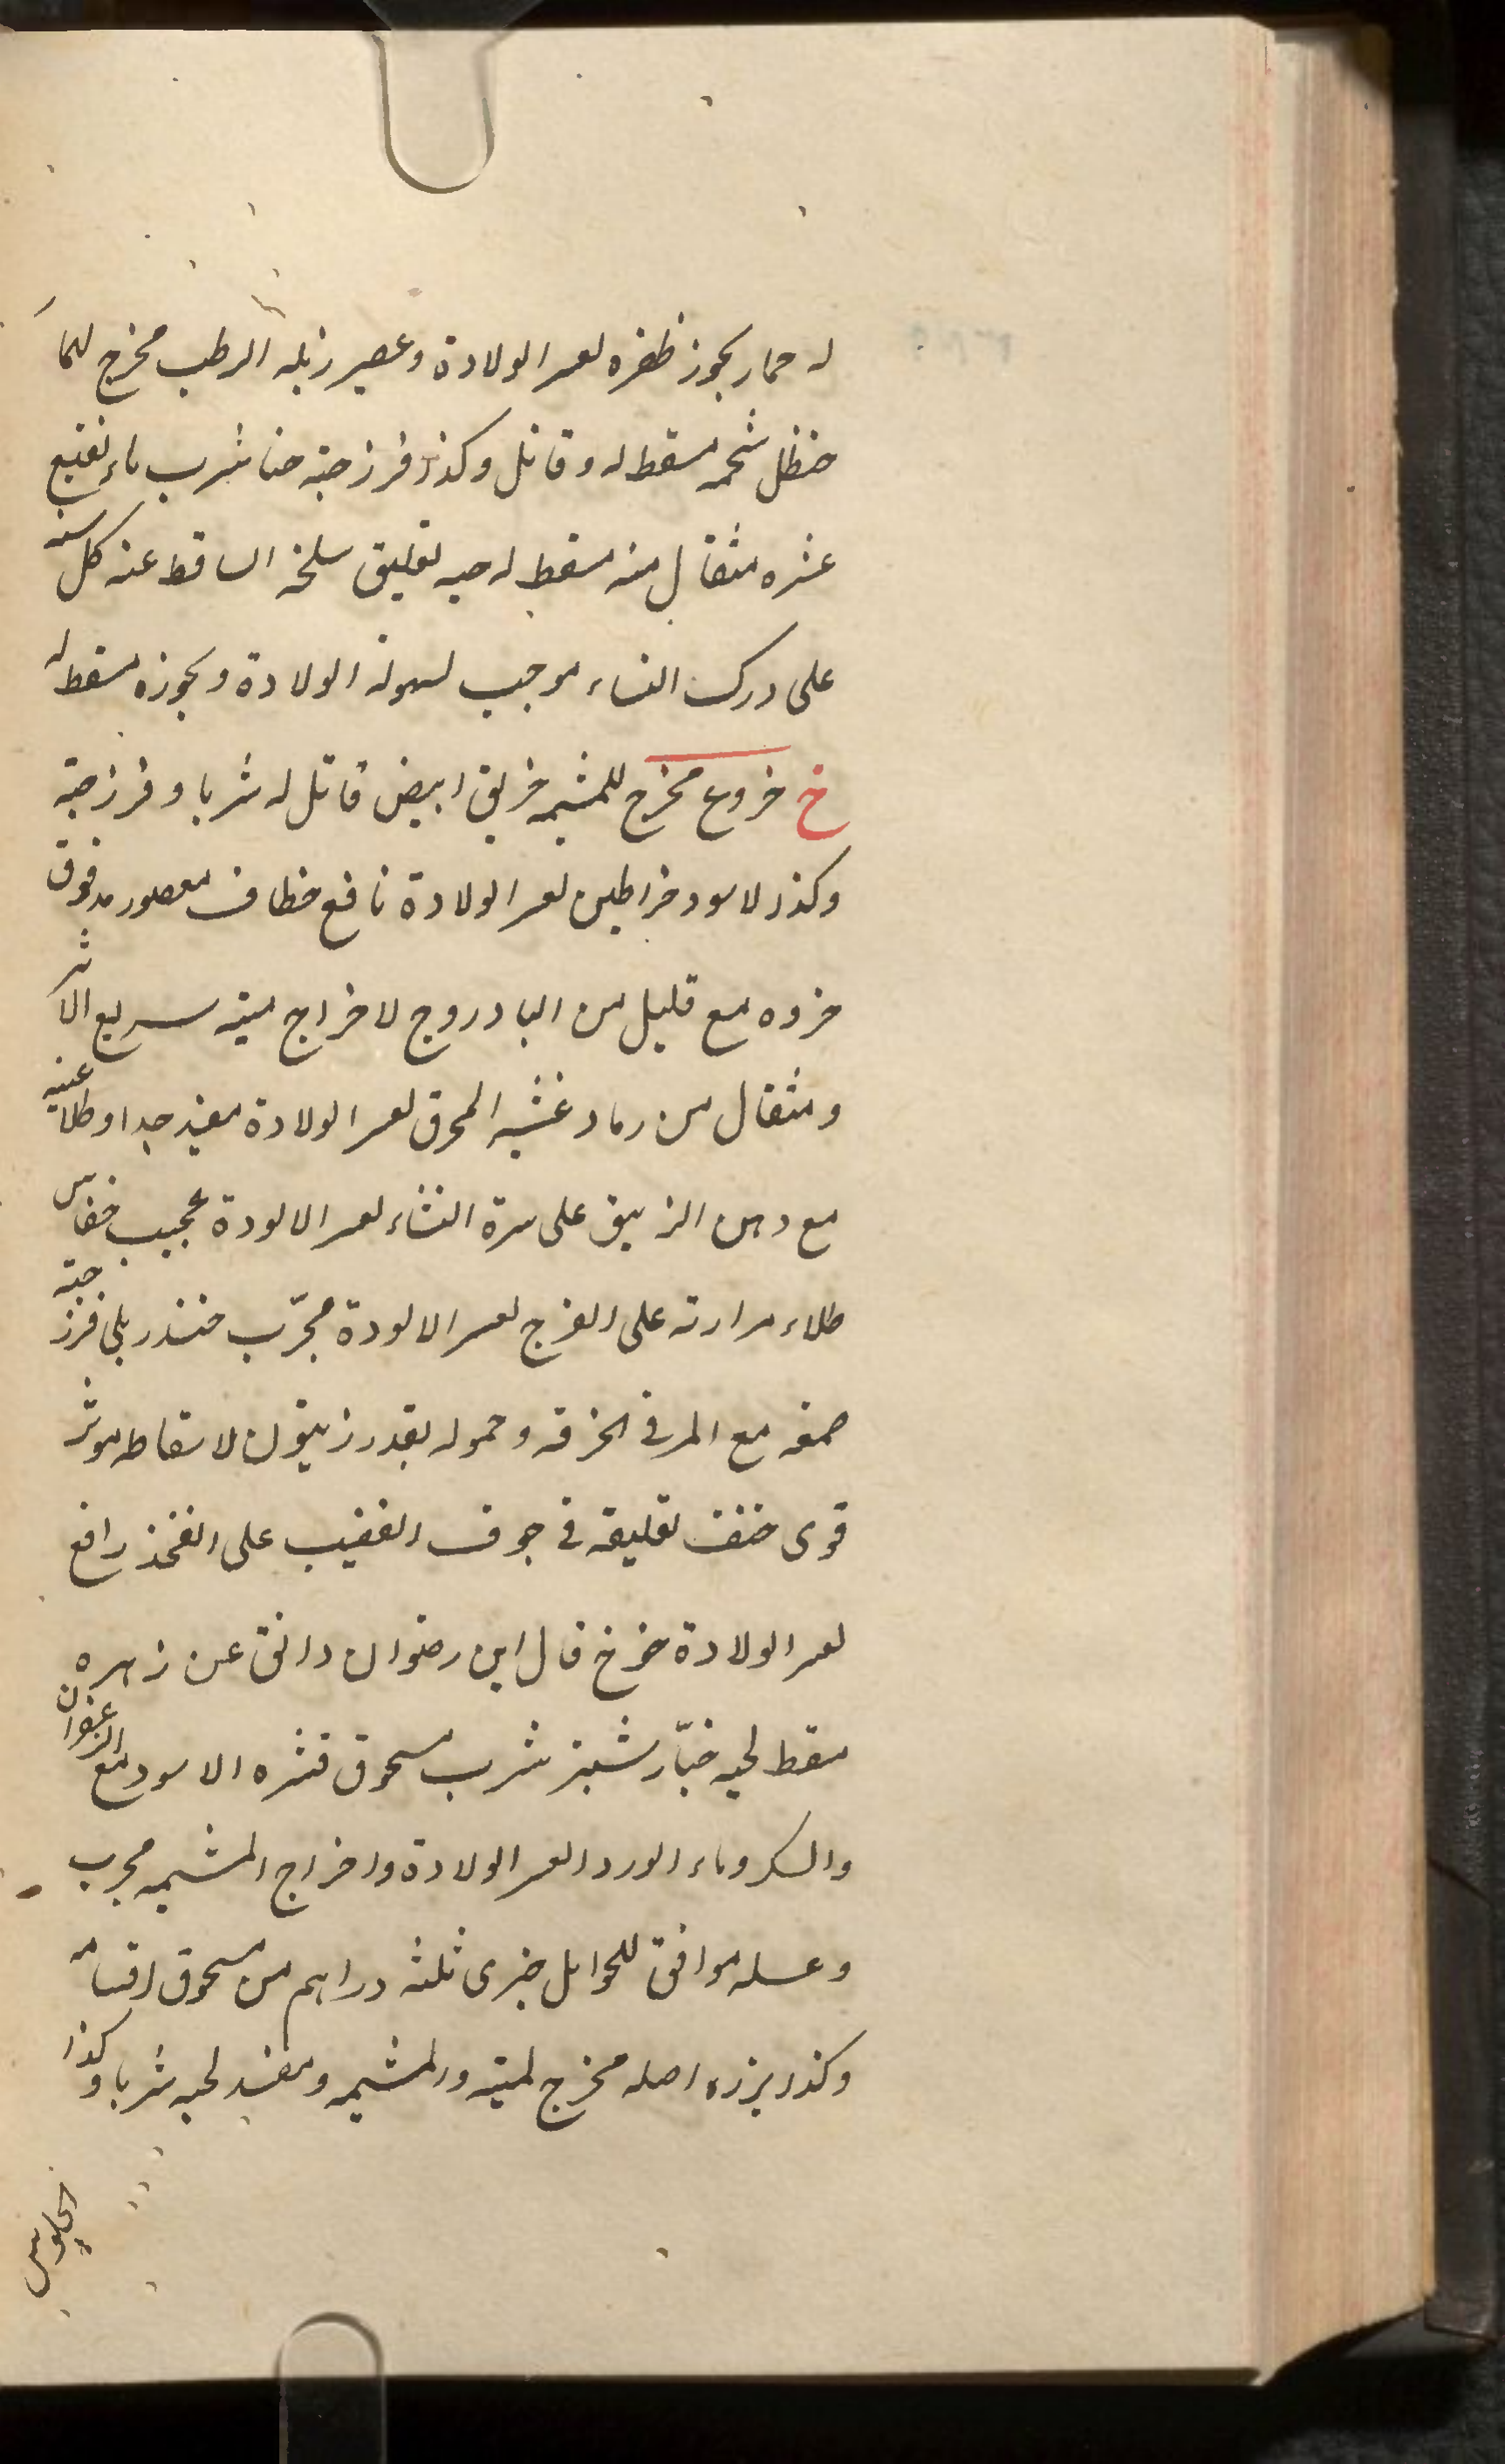 له حمار بخوز ظفره لعسر الولادة وعصير زبله الرطب مخرج لهما
حنظل شحمه مسقط له وقاتل وكذا فرزجته حنا شرب ماء نقيع
عشره مثقال منه مسقط له حيه تعليق سلخه الساقط عنه كل سنه
على درك النساء موجب لسهولة الولادة وبخوره مسقط له
خ خروع مخرج للمشيمه خربق ابيض قاتل له شربا وفرزجة
وكذا لاسود خراطين لعسر الولادة نافع خطاف معصور مدقوق
خروه مع قليل من البادروج لاخراج ميته سريع الاثر
ومثقال من رماد عشه المحرق لعسر الولادة مفيد جدا وطلا عنبه
مع دهن الزيبق على سرة النساء لعسر الالودة عجيب خفاش
طلاء مرارته على الفرج لعسر الالودة مجرّب خندريلى فرزجة
صمغه مع المر فى الخرقه وحموله بقدر زيتون لاسقاطه موثر
قوى خنفسا تعليقه فى جوف القضيب على الفخذ رافع
لعسر الولادة خوخ قال ابن رضوان دانق عن زهره
مسقط لحيه خيار شنبر شرب مسحوق قشره الاسود مع الزعفران
والسكر وماء الورد لعسر الولادة واخراج المشيمه مجرب
وعسله موافق للحوامل خيرى ثلثه دراهم من مسحوق اقسامه
وكذا بزره اصله مخرج لميته والمشيمه ومفسد لحيه شربا وكذا
الجلوس